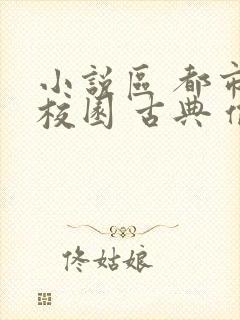 小說區 都市
校園 古典
佟姑娘